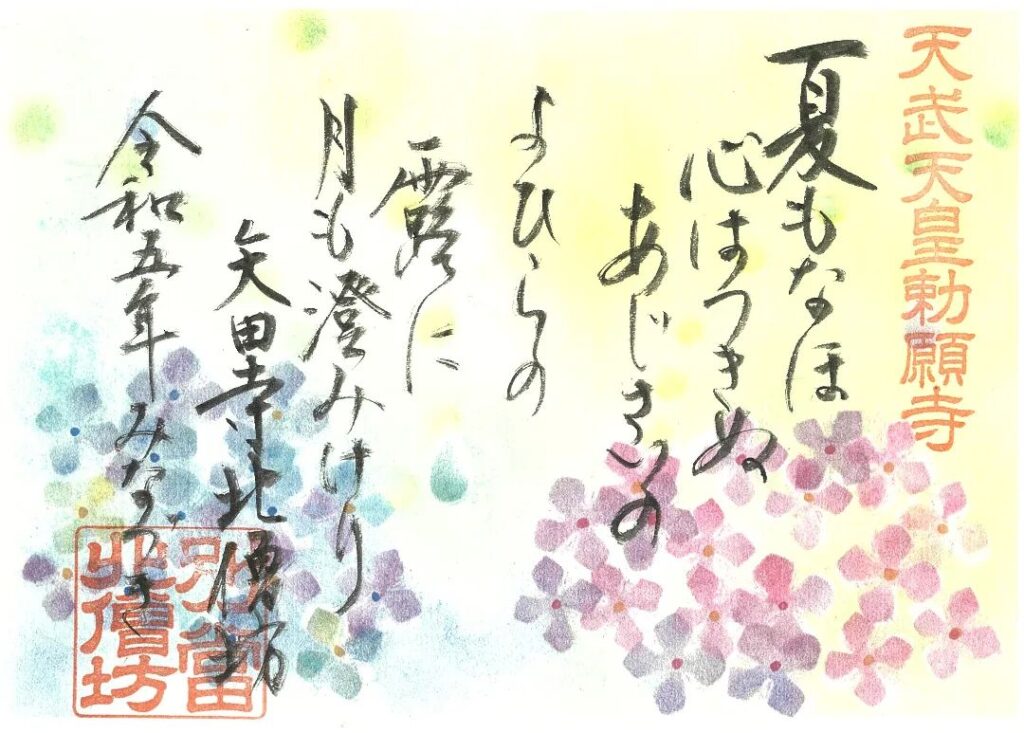 天武天皇勅願寺
夏もなほ
心はつきぬ
あじさいの
よひらの
露に
月も澄みけり
矢田寺北僧坊
令和五年みなづき
別當
北僧坊